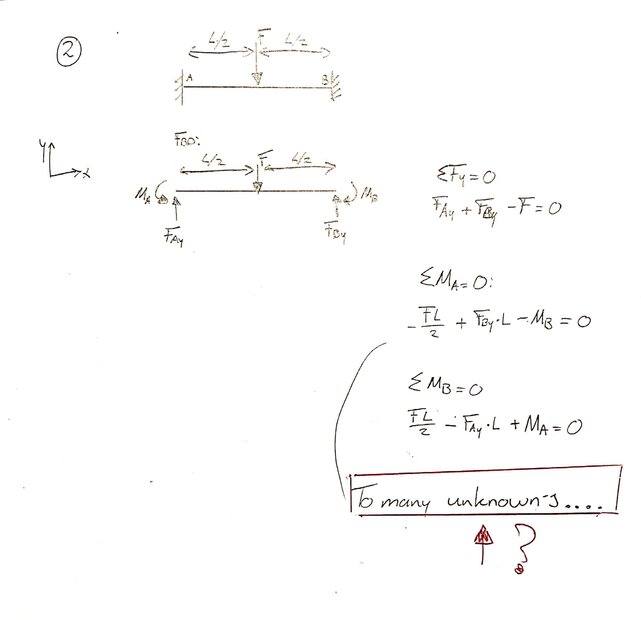 2
L/2 F L/2
A B
FBD:
y
x
L/2 F L/2
MA MB
FAy FBy
ΣFy=0
FAy + FBy - F = 0
ΣMA=0:
- FL/2 + FBy·L - MB = 0
ΣMB=0
FL/2 - FAy·L + MA = 0
To many unknown-s....
?